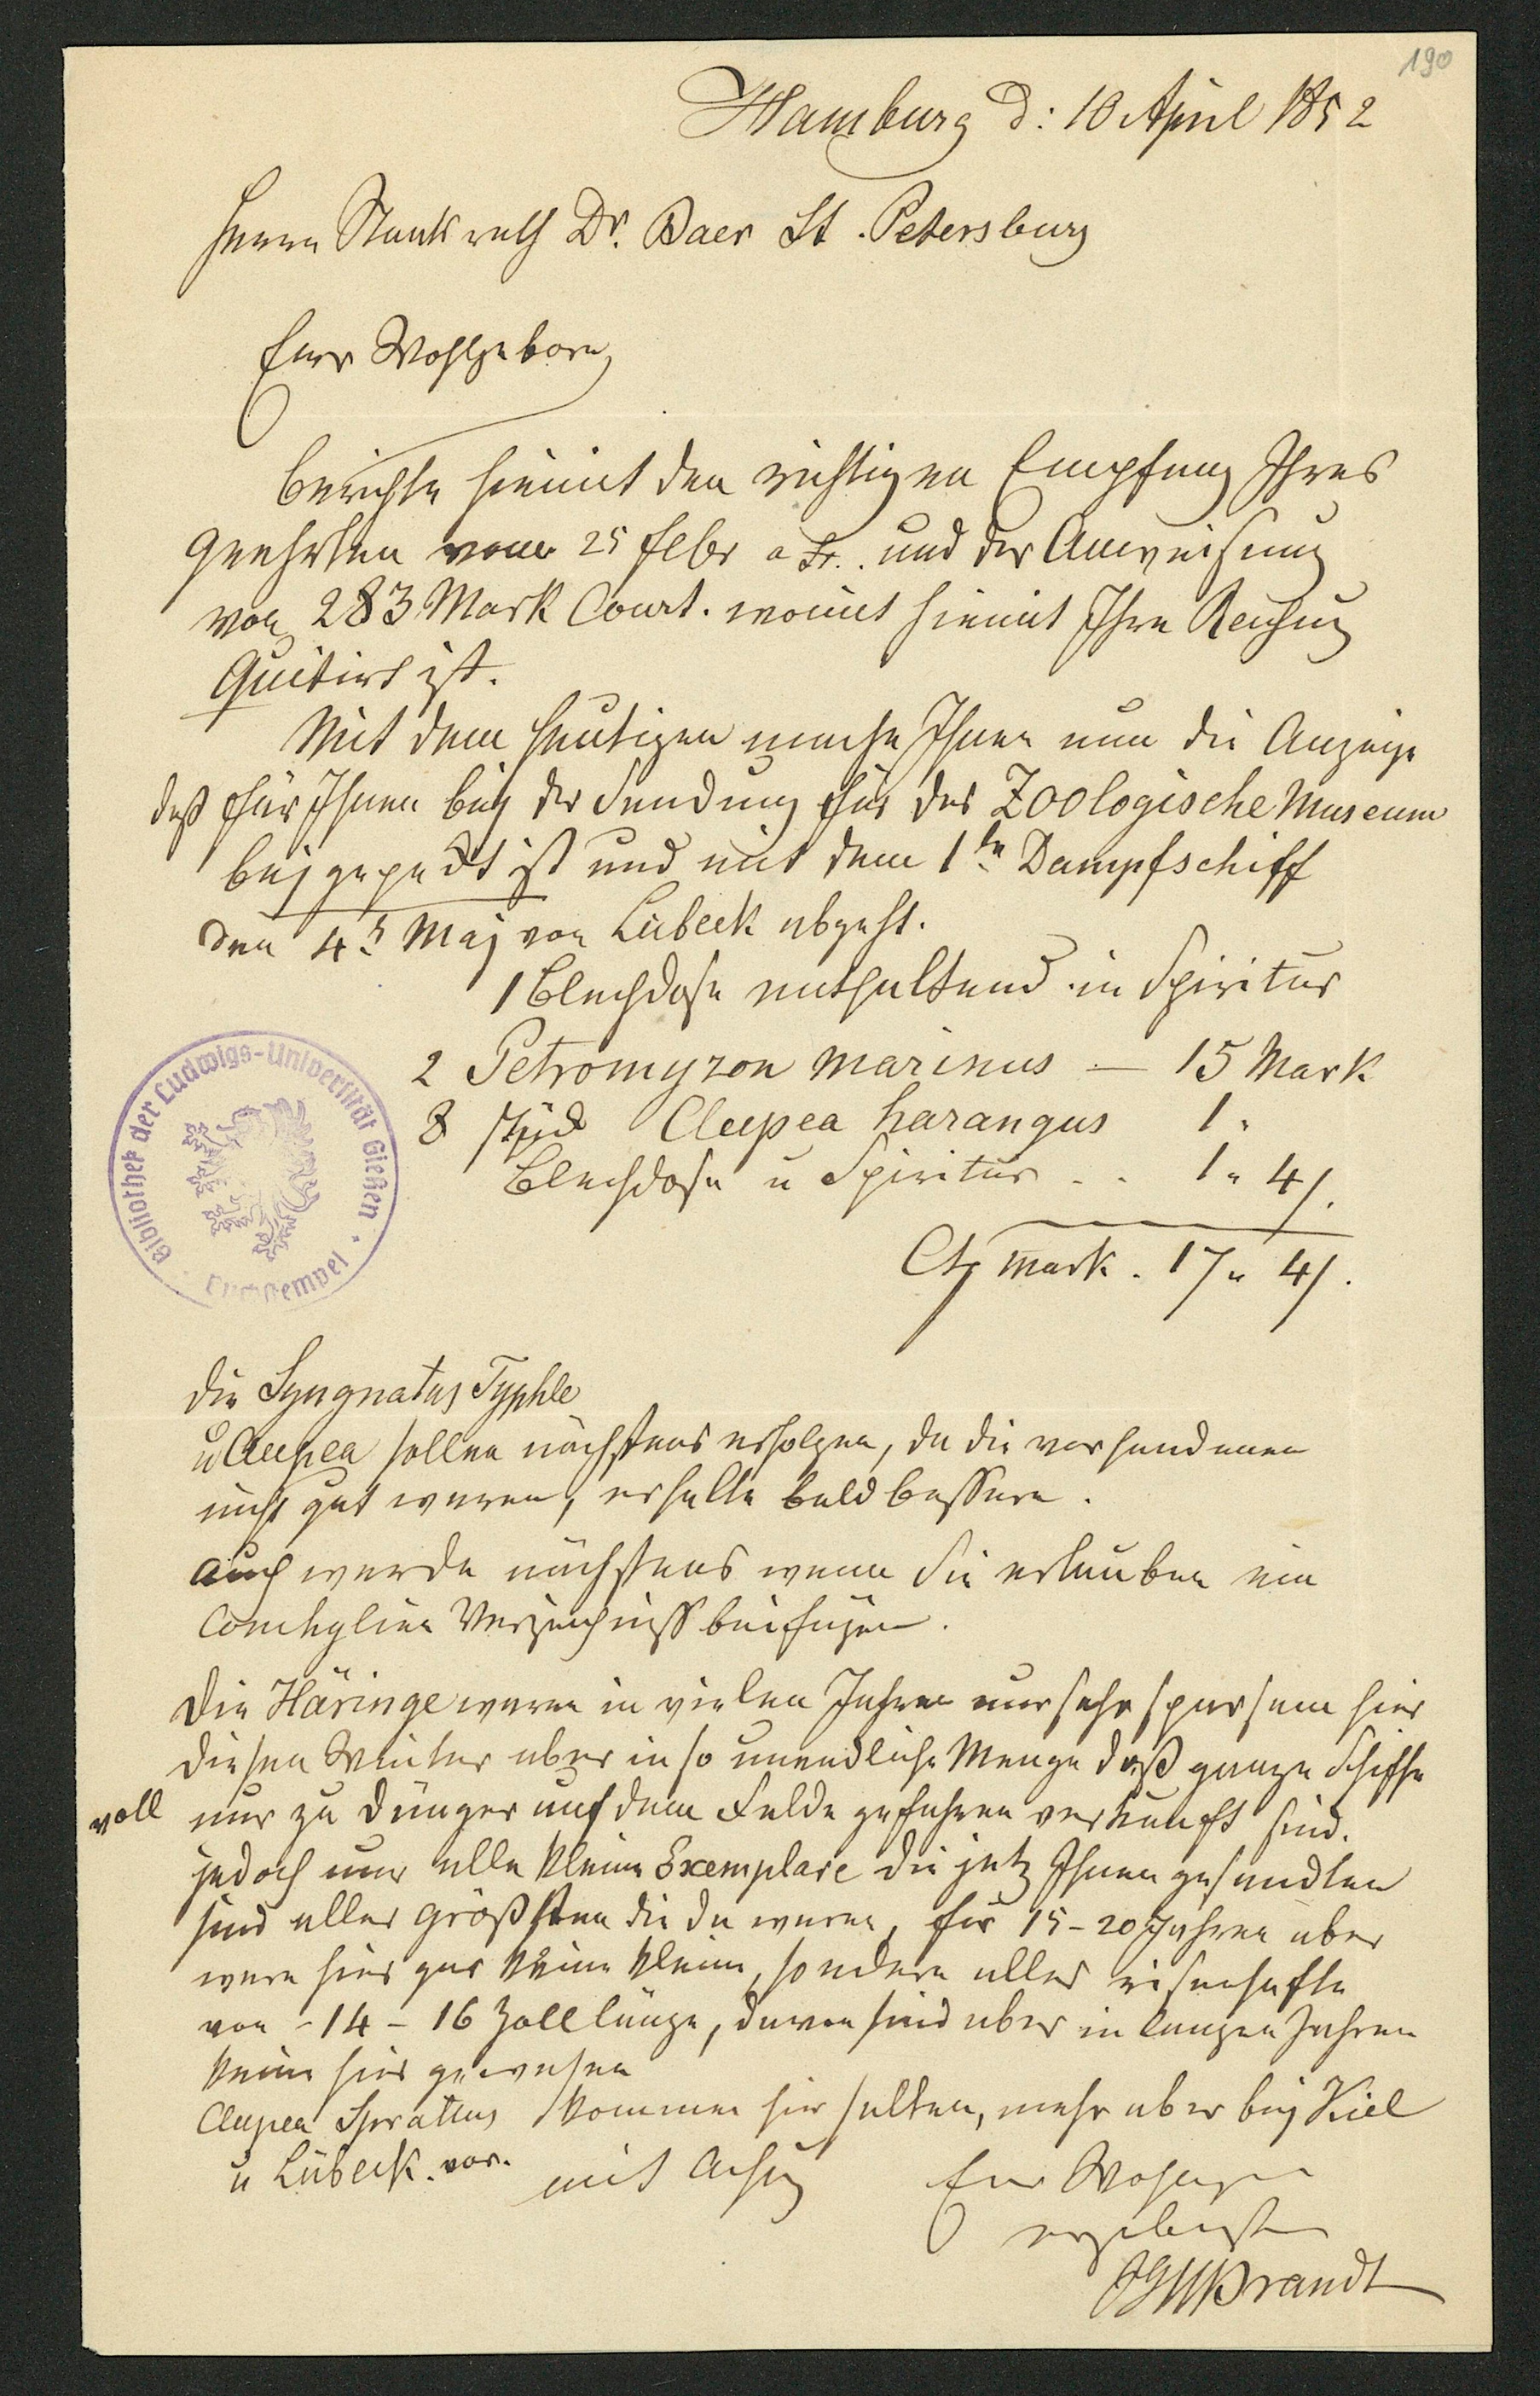 190
Hamburg d: 10 April 1852
Herrn Staatsrath Dr. Baer St. Petersburg
Euer Wohlgeborn
berichte hiemit den richtigen Empfang Ihres
Geehrten vom 25 Febr a St. und der Anweisung
von 283 Mark Court. womit hiemit Ihre Rechnung
Quitirt ist.
Mit dem heutigen mache Ihnen nun die Anzeige
daß für Ihnen bey der Sendung für das Zoologische Museum
beygepackt ist und mit dem 1ten Dampfschiff
den 4t Maj von Lübeck abgeht.
1 Blechdose enthaltend in Spiritus
2 Petromyzon marinus — 15 Mark
8 stück Clupea harangus 1 "
Blechdose u Spiritus . . 1 " 4/.
Ct Mark. 17 " 4/.
Bibliothek der Ludwigs-Universität Gießen
die Syngnatus Typhle
u Clupea sollen nächstens erfolgen, da die vorhandenen
nicht gut waren, erhalte bald bessere.
auch werde nächstens wenn Sie erlauben ein
Conchylien Verzeichniss beifügen.
die Häringe waren in vielen Jahren nur sehr sparsam hier
diesen Winter aber in so unendliche Menge daß ganze Schiffe
voll nur zu Dünger auf dem Felde gefahren verkauft sind.
jedoch nur alle kleine Exemplare die jetz Ihnen gesandten
sind aller größsten die da waren, für 15-20 Jahren aber
waren hier gar keine kleine, sondern alles risenhafte
von - 14 - 16 Zoll länge, davon sind aber in langen Jahren
keine hier gewesen
Clupea Sprattus kommen hir selten, mehr aber bey Kiel
u Lübeck vor.
mit Achtung Euer Wohlgeb
ergebenster
Brandt